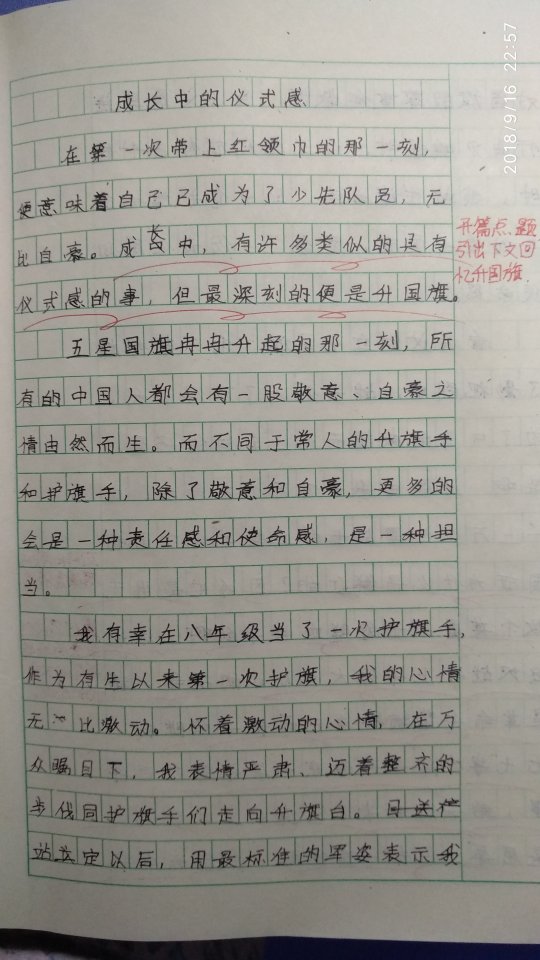 成长中的仪式感
在第一次带上红领巾的那一刻，
便意味着自己已成为了少先队员，无
比自豪。成长中，有许多类似的具有
仪式感的事，但最深刻的便是升国旗。
五星国旗冉冉升起的那一刻，所
有的中国人都会有一股敬意、自豪之
情由然而生。而不同于常人的升旗手
和护旗手，除了敬意和自豪，更多的
会是一种责任感和使命感，是一种担
当。
我有幸在八年级当了一次护旗手，
作为有生以来第一次护旗，我的心情
无比激动。怀着激动的心情，在万
众瞩目下，我表情严肃、迈着整齐的
步伐同护旗手们走向升旗台。目送
站立定以后，用最标准的军姿表示我
开篇点题
引出下文回
忆升国旗.
2018/9/16 22:57